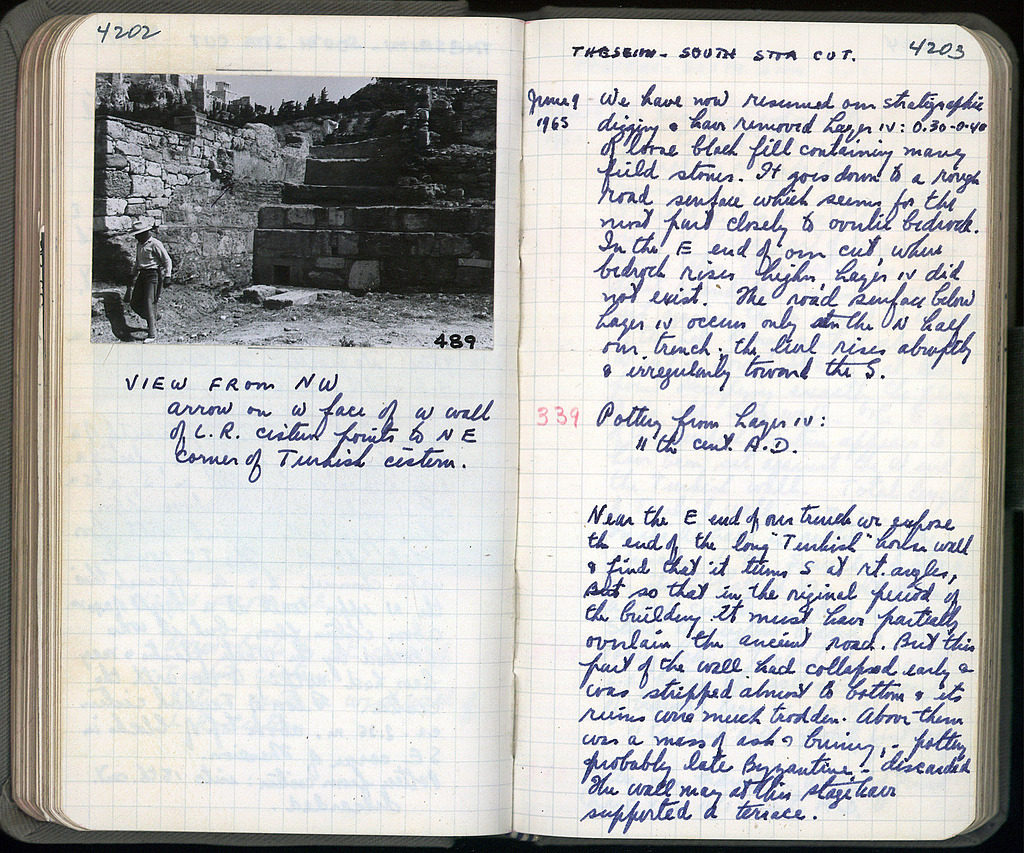 4202
489
VIEW FROM NW
arrow on W face of W wall
of L.R. cistern points to NE
corner of Turkish cistern.
4203
THESEION - SOUTH STOA CUT.
June 9
1965
We have now resumed our stratigraphic
digging & have removed Layer IV: 0.30-0.40
of loose black fill containing many
field stones. It goes down to a rough
road surface which seems for the
most part closely to overlie bedrock.
In the E end of our cut, where
bedrock rises higher, Layer IV did
not exist. The road surface below
Layer IV occurs only in the N half
our trench. The level rises abruptly
& irregularly toward the S.
339
Pottery from Layer IV:
11 the cent. A.D.
Near the E end of our trench we expose
the end of the long "Turkish" house wall
& find that it turns S at rt. angles,
But so that in the original period of
the building it must have partially
overlain the ancient road. But this
part of the wall had collapsed early &
was stripped almost to bottom & its
ruins were much trodden. Above them
was a mass of ash & burning, - pottery
probably late Byzantine - discarded
The wall may at this stage have
supported a terrace.